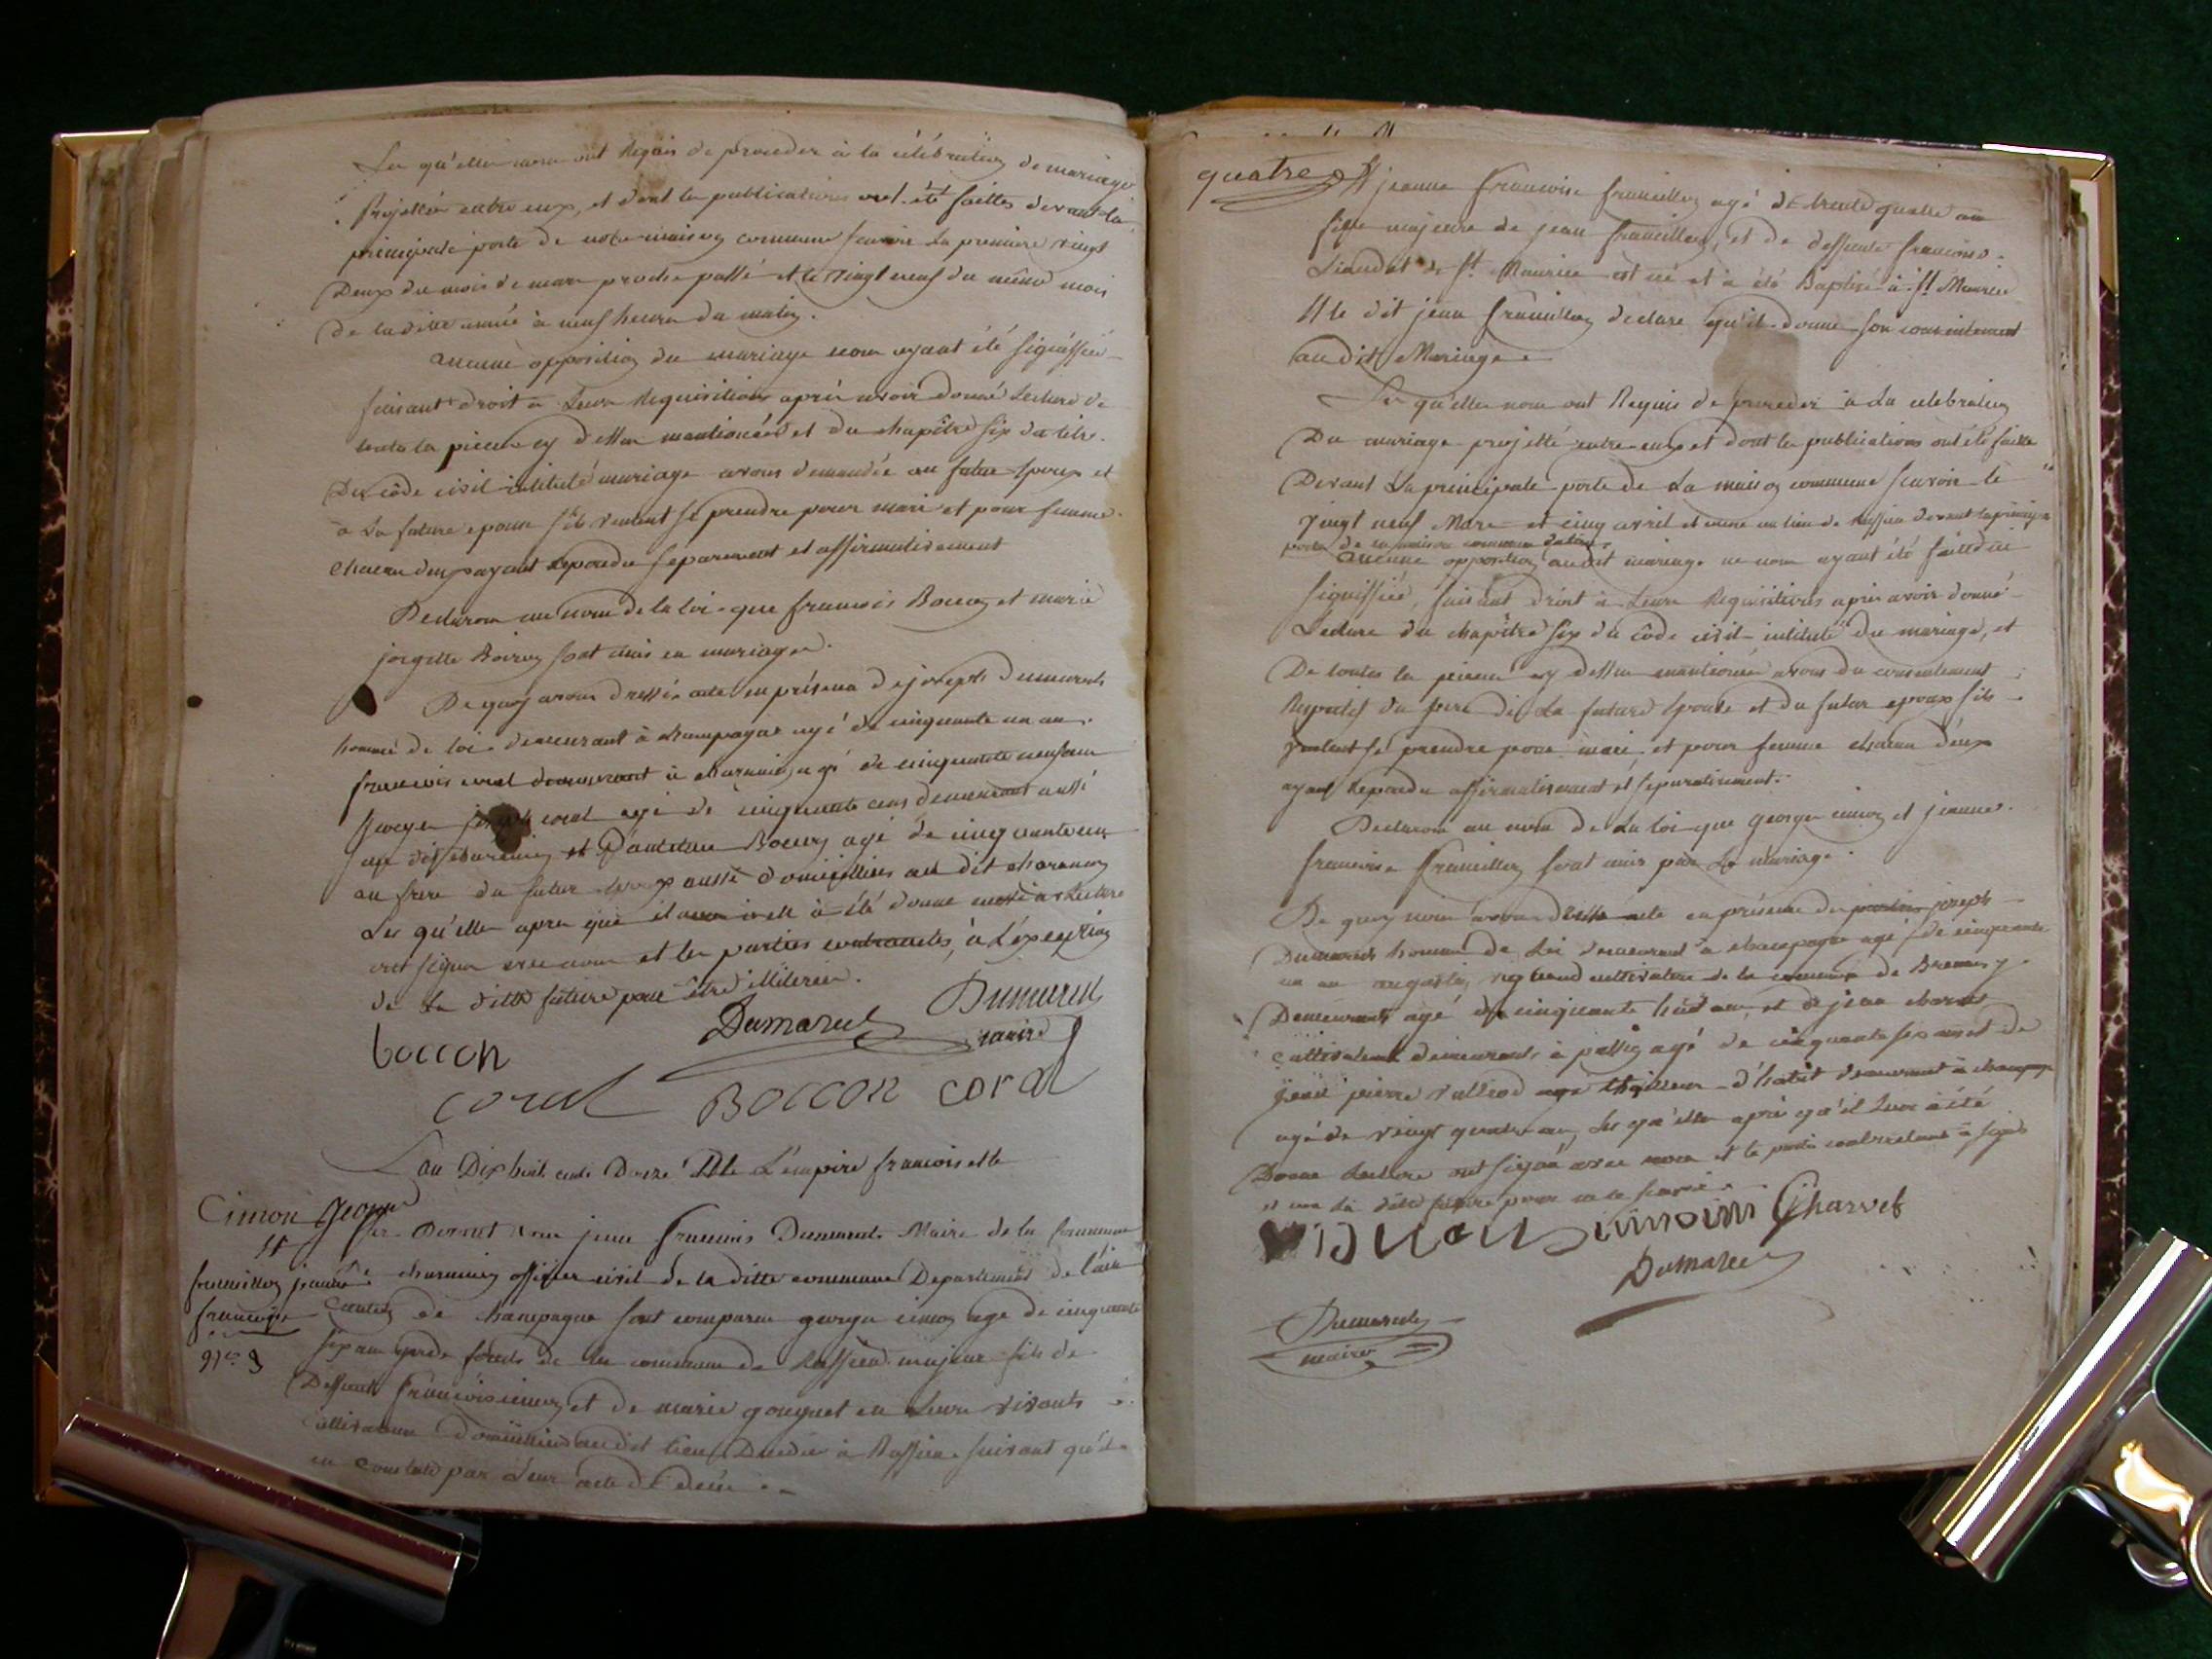 Les qu'elles nous ont Requis de proceder à la célébration de mariage
Projetté entre eux, et dont les publications ont été faittes devant la
principale porte de notre maison commune scavoir La premiere vingt
Deux du mois de mars proche passé et le vingt neuf du même mois
de laditte année à neuf heures du matin.
aucune opposition du mariage nous ayant été signiffiée
faisant droit a Leurs Requisitions après avoir donné Lecture de
toutes les pieces cy dessus mentionées et du chapitre six du titre
Du côde civil intitulé mariage avons demandé au futur Epoux et
à La future epouse s'ils veulent se prendre pour mari et pour femme
chacun deux ayant repondu separement et affirmativement
Declarons au nom de la loi que francois Boccon et marie
jorgette Boiron sont unis en mariage.
De quoy avons dressé acte en présence de joseph Dumarest
homme de loi demeurant à champagne agé de cinquante un an
francois coral demeurant à charancin agé de cinquante neuf ans
coral agé de cinquante ans demeurant aussi
au dit charancin et Boccon agé de cinquante un
an frere du futur Epoux aussi domicilliés au dit charancin
Les qu'elles apres que il leur a été donné aussi Lecture
ont signé avec nous et les parties contractantes, à L'éxception
de la ditte future pour être illiterée.
Dumarest
Dumarest
maire
boccon
coral BOCCON coral
L'an Dix huit cents Douze de L'empire francois et le
Cimon George
Par Devant nous jean francois Dumarest Maire de la Commune
et
francillon jeanne
de charancin officier civil de la ditte commune Departement de l'ain
francoise
Canton de champagne sont comparus george cimon agé de cinquante
n° 3
six ans garde forets de la commune de Ruffieu majeur fils de
Deffunts francois cimon et de marie gouguet en Leurs vivants
Cultivateurs domicilliés audit lieu Decedés à Ruffieu suivant qu'il
en constate par Leur acte de Decès.
quatre
Et jeanne francoise francillon agé de trente quatre an
fille majeure de jean francillon, et de deffunte francoise
de St Maurice est né et à été Baptisé à St Maurice
et le dit jean francillon declare qu'il donne son consentement
audit Mariage.
Les qu'elles nous ont Requis de proceder à La celebration
Du mariage projetté entre eux et dont les publications ont été faitte
Devant La principale porte de La maison commune scavoir le
vingt neuf Mars et cinq avril et meme au lieu de Ruffieu devant la principale
porte de la maison commune
aucune opposition audit mariage ne nous ayant été faitte ni
signiffiée, faisant droit à Leurs Requisitions après avoir donné
Lecture du chapitre six du côde civil intitulé du mariage, et
De toutes les pieces cy dessus mentionées avons du consentement
Respectif du pere de La future Epouse et du futur epoux s'ils
veulent se prendre pour mari et pour femme chacun deux
ayant Repondu affirmativement et separativement.
Declarons au nom de La loi que george cimon et jeanne
francoise francillon sont unis par Le mariage.
De quoy nous avons dressé acte en présence de joseph
Dumarest homme de Loi demeurant à champagne agé de cinquante
un an cultivateur de la commune de
Demeurant agé de cinquante huit ans, et de jean charvet
Cultivateur demeurant à passin agé de cinquante six ans et de
jean pierre agé thailleur d'habit demeurant à champagne
agé de vingt quatre an, Les qu'elles après qu'il Leur à été
Donné Lecture ont signé avec nous et les partie contractante à signé
et non la ditte future pour ne le scavoir.
simoin Charvet
Dumarest
Dumarest
maire